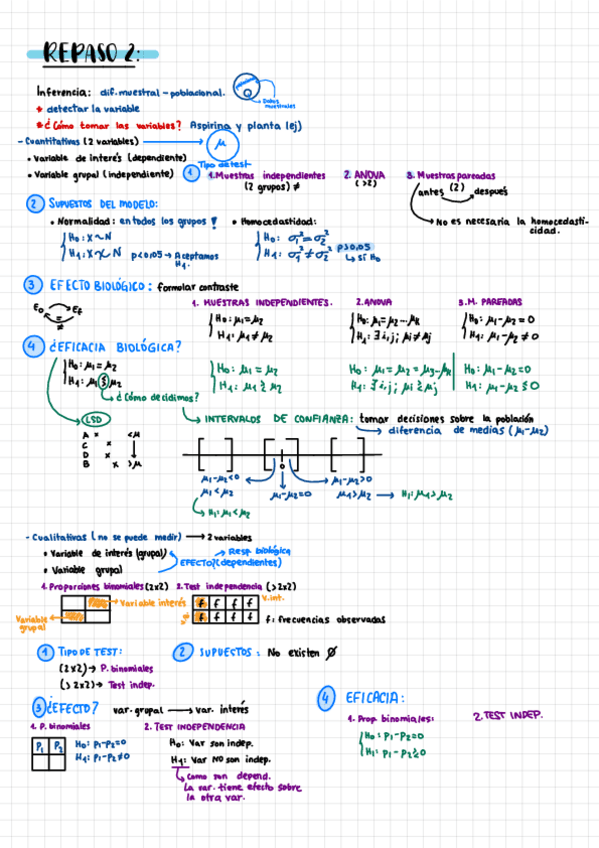 REPASO 2:
Inferencia: dif. muestral - poblacional.
Datos muestrales
* detectar la variable
* ¿Cómo tomar las variables? Aspirina y planta lej)
- Cuantitativas (2 variables) → μ
• Variable de interés (dependiente)
• Variable grupal (independiente)
① Tipo de test
1. Muestras independientes (2 grupos) ≠
2. ANOVA (>2)
3. Muestras pareadas (2)
antes después
→ No es necesaria la homocedasticidad.
② SUPUESTOS DEL MODELO:
• Normalidad: en todos los grupos !
H₀: X ~ N
H₁: X ≁ N p<0,05 → Aceptamos H₁.
• Homocedastidad:
H₀: σ₁² = σ₂²
H₁: σ₁² ≠ σ₂² p>0,05
↳ sí H₀
③ EFECTO BIOLÓGICO: formular contraste
E₀ Ef
= ≠
1. MUESTRAS INDEPENDIENTES.
H₀: μ₁ = μ₂
H₁: μ₁ ≠ μ₂
2. ANOVA
H₀: μ₁ = μ₂ ... μk
H₁: ∃ i, j; μi ≠ μj
3. M. PAREADAS
H₀: μ₁ - μ₂ = 0
H₁: μ₁ - μ₂ ≠ 0
④ ¿EFICACIA BIOLÓGICA?
H₀: μ₁ = μ₂
H₁: μ₁ ≷ μ₂
→ ¿Cómo decidimos?
H₀: μ₁ = μ₂
H₁: μ₁ ≷ μ₂
H₀: μ₁ = μ₂ = μ₃ ... μk
H₁: ∃ i, j; μi ≷ μj
H₀: μ₁ - μ₂ = 0
H₁: μ₁ - μ₂ ≶ 0
LSD
A x <μ
C x
D x
B x >μ
→ INTERVALOS DE CONFIANZA: tomar decisiones sobre la población
→ diferencia de medias (μ₁-μ₂)
0
μ₁-μ₂<0
μ₁<μ₂
↳ H₁: μ₁<μ₂
μ₁-μ₂=0
μ₁-μ₂>0
μ₁>μ₂ → H₁: μ₁>μ₂
- Cualitativas (no se puede medir) → 2 variables
• Variable de interés (grupal)
• Variable grupal
→ Resp. biológica
EFECTO? (dependientes)
1. Proporciones binomiales (2x2)
Variable interés
Variable grupal
2. Test independencia (>2x2)
V. int.
f f f f
f f f f
f: frecuencias observadas
① TIPO DE TEST:
(2x2) → P. binomiales
(>2x2) → Test indep.
② SUPUESTOS: No existen ∅
③ ¿EFECTO? var. grupal → var. interés
1. P. binomiales
P₁ P₂
H₀: p₁-p₂=0
H₁: p₁-p₂≠0
2. TEST INDEPENDENCIA
H₀: Var son indep.
H₁: Var NO son indep.
↳ Como son depend.
La var. tiene efecto sobre
la otra var.
④ EFICACIA:
1. Prop. binomiales:
H₀: p₁-p₂=0
H₁: p₁-p₂≷0
2. TEST INDEP.